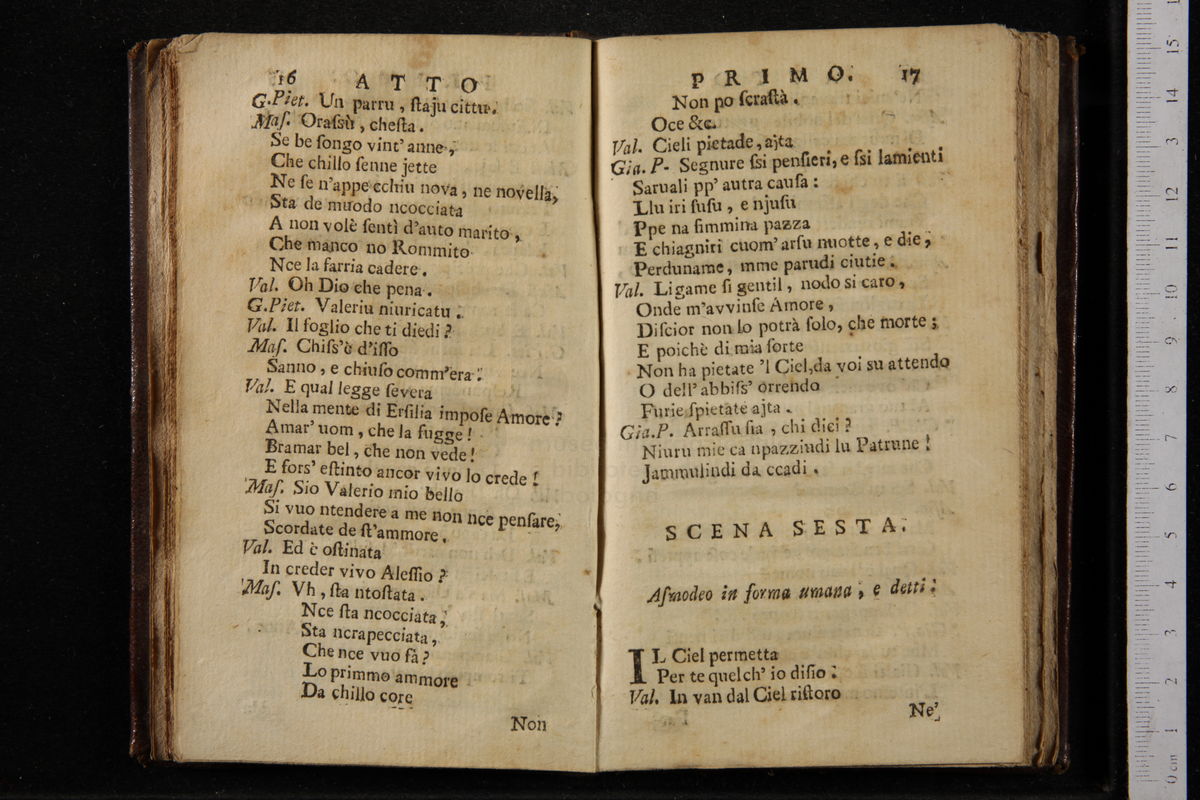 16 ATTO
G.Piet. Un parru, ſtaju cittu.
Maſ. Oraſsù, cheſta.
Se be ſongo vint' anne,
Che chillo ſenne jette
Ne ſe n'appe cchiu nova, ne novella,
Sta de muodo ncocciata
A non volè ſentì d'auto marito,
Che manco no Rommito
Nce la farria cadere.
Val. Oh Dio che pena.
G.Piet. Valeriu niuricatu.
Val. Il foglio che ti diedi?
Maſ. Chiſs'è d'iſſo
Sanno, e chiuſo comm'era.
Val. E qual legge ſevera
Nella mente di Erſilia impoſe Amore?
Amar' uom, che la fugge!
Bramar bel, che non vede!
E fors' eſtinto ancor vivo lo crede!
Maſ. Sio Valerio mio bello
Si vuo ntendere a me non nce penſare,
Scordate de ſt'ammore.
Val. Ed è oſtinata
In creder vivo Aleſſio?
Maſ. Vh, ſta ntoſtata.
Nce ſta ncocciata,
Sta ncrapecciata,
Che nce vuo fà?
Lo primmo ammore
Da chillo core
Non
PRIMO. 17
Non po ſcraſtà.
Oce &c.
Val. Cieli pietade, ajta
Gia. P. Segnure ſsi penſieri, e ſsi lamienti
Saruali pp' autra cauſa:
Llu iri ſuſu, e njuſu
Ppe na fimmina pazza
E chiagniti cuom' arſu nuotte, e die,
Perduname, mme parudi ciutie.
Val. Ligame ſi gentil, nodo si caro,
Onde m'avvinſe Amore,
Diſcior non lo potrà ſolo, che morte;
E poichè di mia ſorte
Non ha pietate 'l Ciel, da voi su attendo
O dell' abbiſs' orrendo
Furie ſpietate ajta.
Gia.P. Arraſſu ſia, chi dici?
Niuru mie ca npazziudi lu Patrune!
Jammulindi da ccadi.
SCENA SESTA.
Aſmodeo in forma umana, e detti.
IL Ciel permetta
Per te quelch' io diſio.
Val. In van dal Ciel riſtoro
Ne'